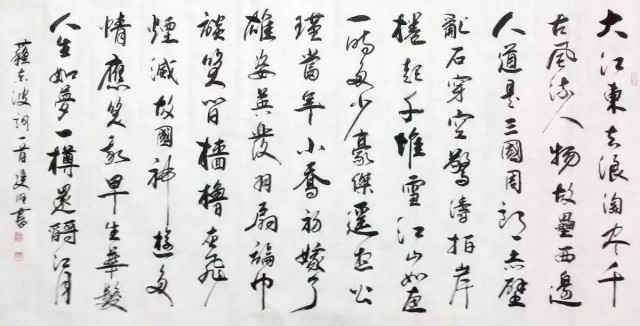 大江東去浪淘尽千
古風流人物故壘西邊
人道是三國周郎赤壁
亂石穿空驚濤拍岸
捲起千堆雪江山如画
一時多少豪傑遥想公
瑾當年小喬初嫁了
雄姿英發羽扇綸巾
談笑間檣櫓灰飛
煙滅故國神遊多
情應笑我早生華髮
人生如夢一樽還酹江月
蘇東坡詞一首 書